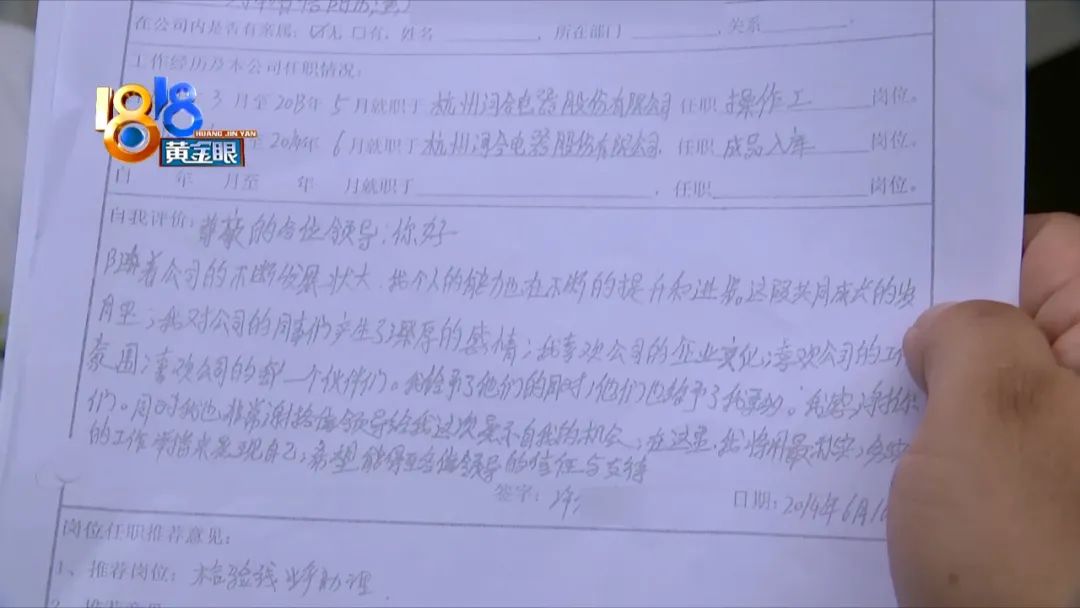 在公司内是否有亲属:☑无 □有,姓名 ,所在部门 ,关系
工作经历及本公司任职情况:
1818
HUANG JIN YAN
黄金眼
3月至2013年5月就职于杭州河合电器股份有限公司 任职 操作工 岗位。
至2014年6月就职于杭州河合电器股份有限公司 任职 成品入库 岗位。
自 年 月至 年 月就职于 ,任职 岗位。
自我评价:尊敬的各位领导:你好
随着公司的不断发展壮大,我个人的能力也在不断的提升和进步。这段共同成长的岁
月里;我对公司的同事们产生了深厚的感情;我喜欢公司的企业文化;喜欢公司的工作
氛围;喜欢公司的每一个伙伴们。我给予了他们的同时,他们也给予了我
们。同时我也非常谢各位领导给我这次展示自我的机会;在这里,我将用最
的工作 来展现自己;希望能得到各位领导的信任与支持
签字:许 日期:2014年6月
岗位任职推荐意见:
1、推荐岗位:检验线 助理
2、推荐意见